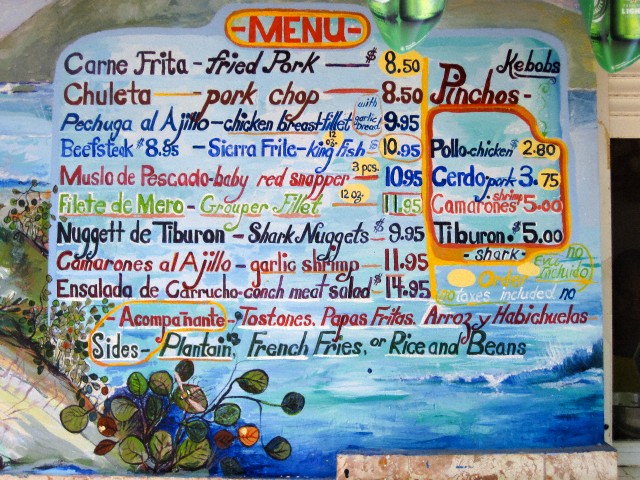 -MENU-
Carne Frita - fried Pork — $ 8.50
Chuleta — pork chop — 8.50
Pechuga al Ajillo - chicken breast fillet with garlic bread 9.95
Beefsteak $8.95 - Sierra Frite - king fish 12 oz. $ 10.95
Muslo de Pescado - baby red snapper 3 pcs. 10.95
Filete de Mero - Grouper Fillet 12 oz. 11.95
Nuggett de Tiburon - Shark Nuggets $ 9.95
Camarones al Ajillo - garlic shrimp - 11.95
Ensalada de Carrucho - conch meat salad $ 14.95
Acompañante - Tostones, Papas Fritas, Arroz y Habichuelas
Sides - Plantain, French Fries, or Rice and Beans
Kebobs
Pinchos -
Pollo - chicken $ 2.80
Cerdo pork 3.75
Camarones shrimp $ 5.00
Tiburon $ 5.00
- shark -
Order
no
incluido
taxes included no